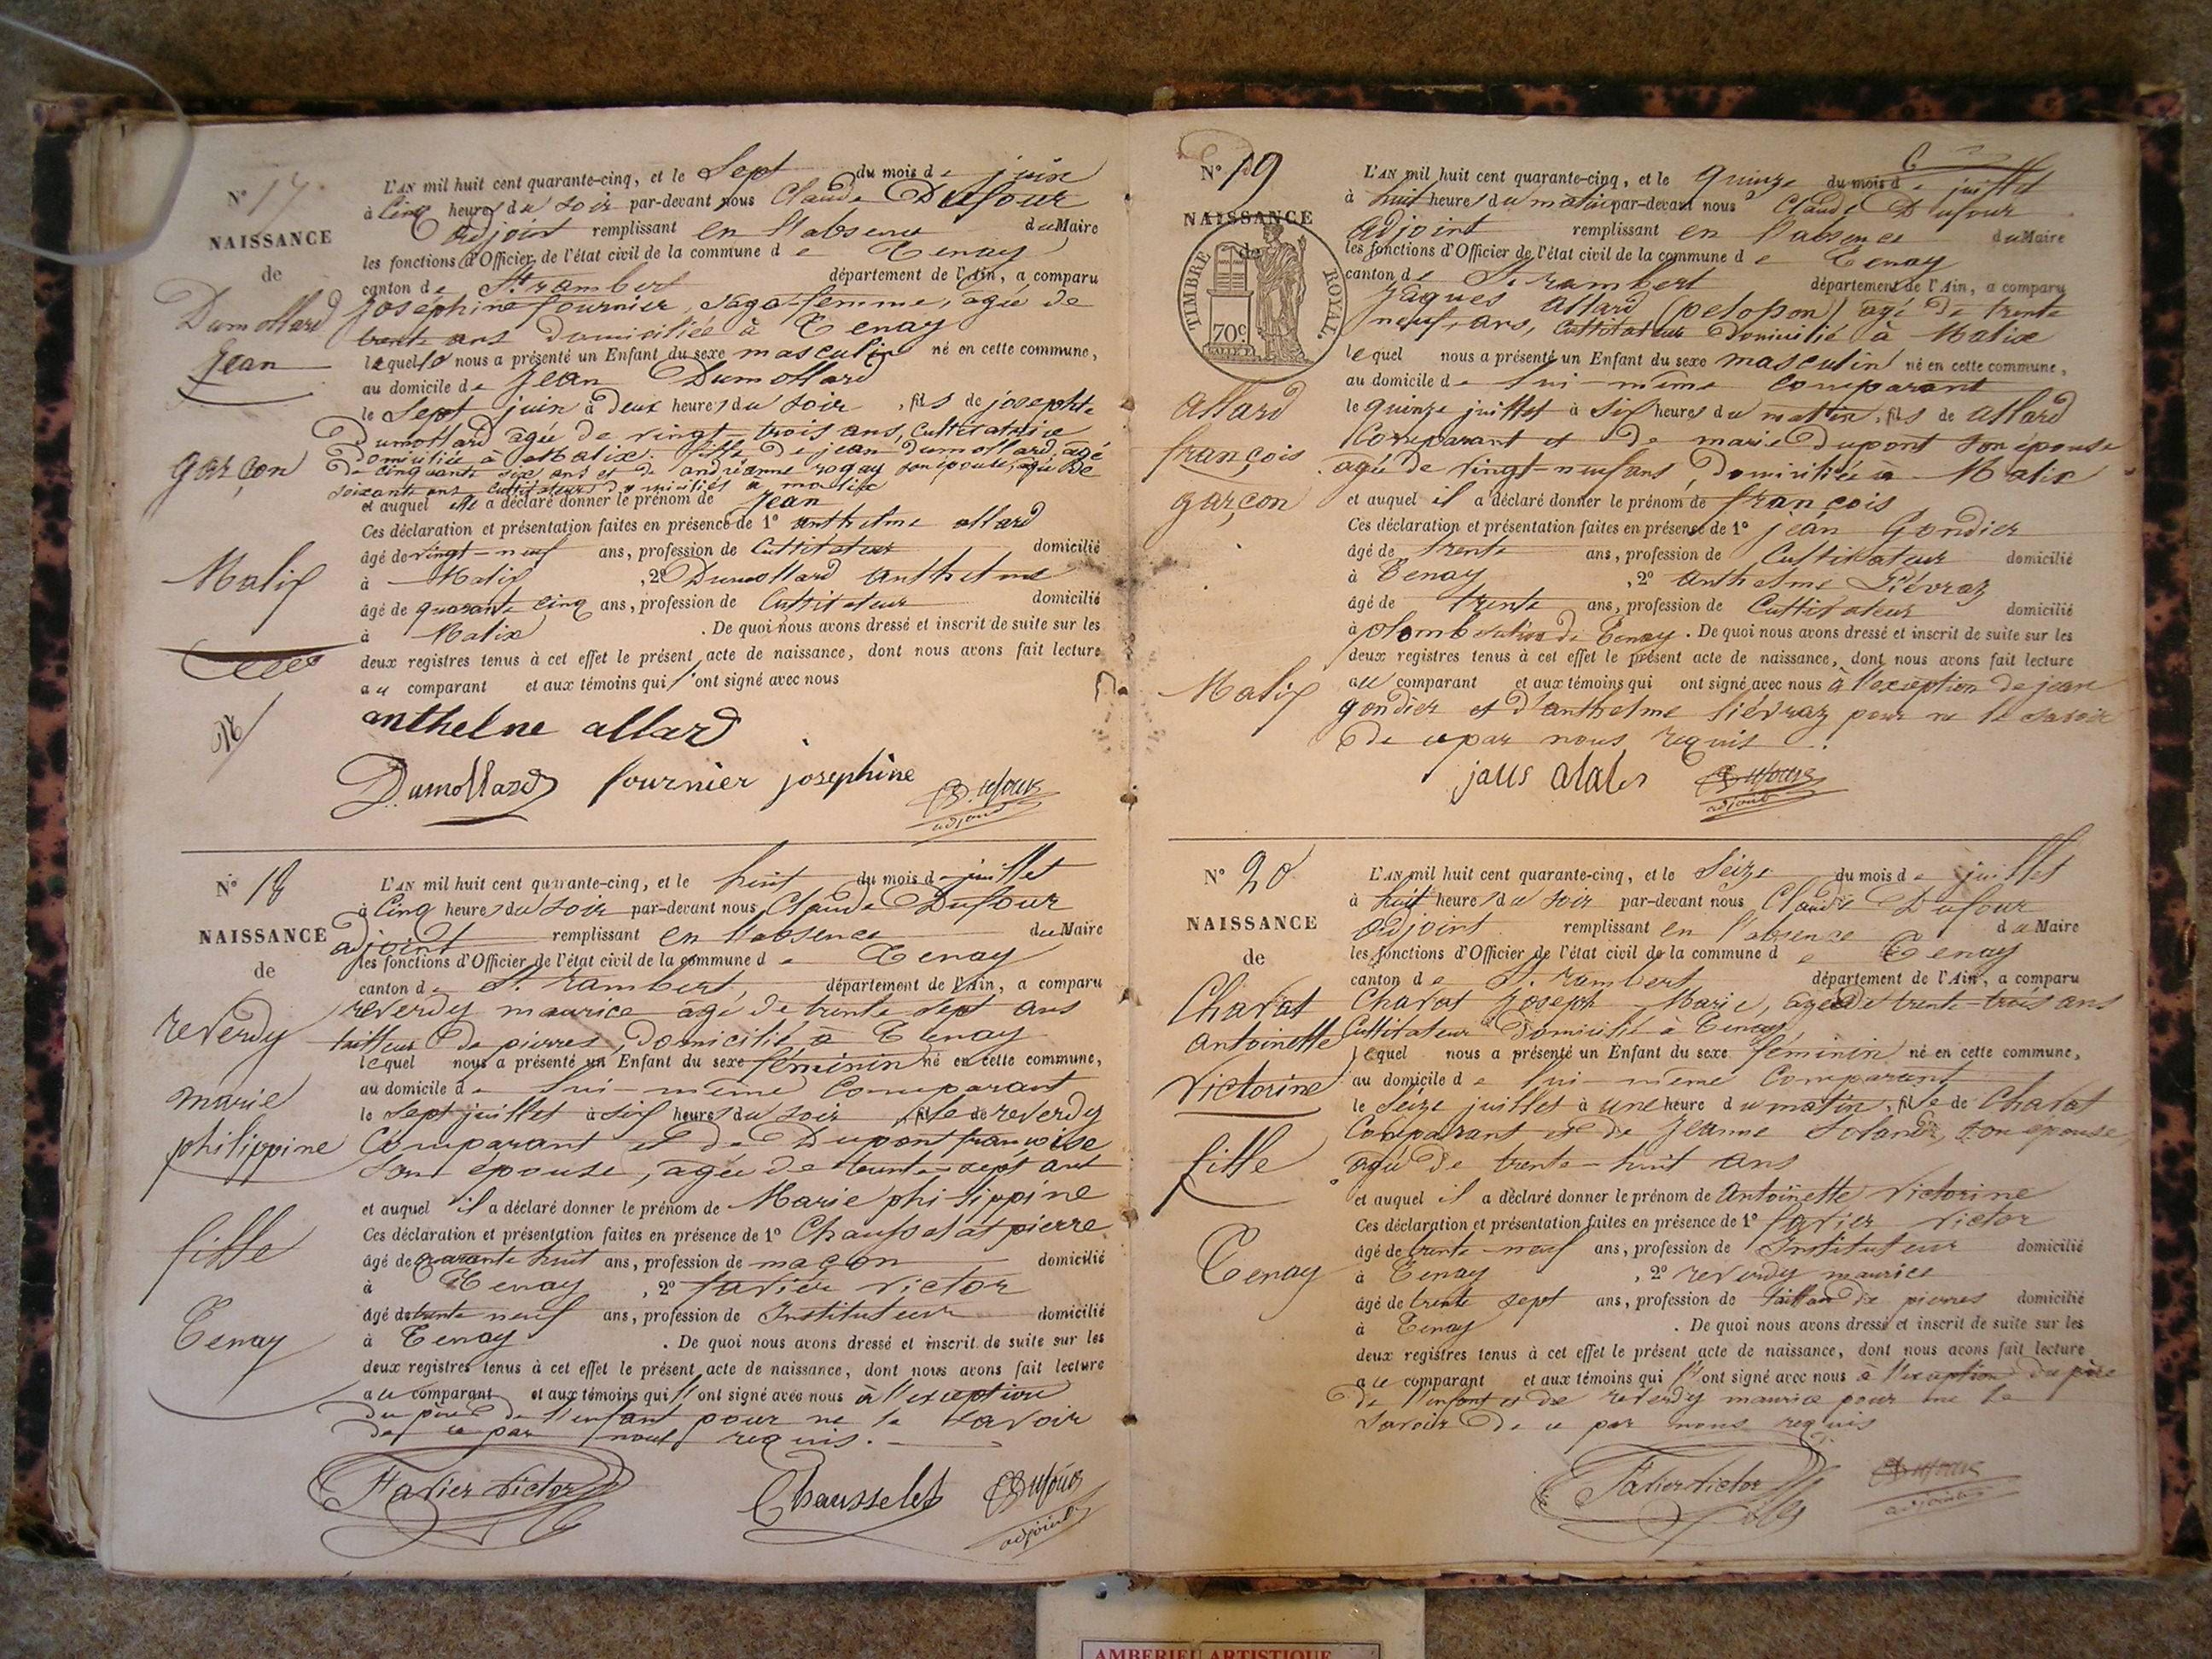 N° 17
NAISSANCE
de
Dumollard
Jean
garçon
Malix
L'AN mil huit cent quarante-cinq, et le Sept du mois de juin
à Cinq heures du soir par-devant nous Claude Dufour
adjoint remplissant en l'absence du Maire
les fonctions d'Officier de l'état civil de la commune de Tenay
canton de St rambert département de l'Ain, a comparu
Joséphine fournier, sage-femme, agée de
trente ans domiciliée à Tenay
lequelle nous a présenté un Enfant du sexe masculin né en cette commune,
au domicile de Jean Dumollard
le Sept juin à Deux heures du soir, fils de josephte
Dumollard agée de vingt-trois ans, Cultivatrice
domiciliée à Malix. fille de jean dumollard, agé
de cinquante six ans et de andréanne rogay son épouse, agée de
soixante ans Cultivateurs domiciliés à malix
et auquel elle a déclaré donner le prénom de Jean
Ces déclaration et présentation faites en présence de 1° anthelme allard
âgé de vingt-neuf ans, profession de Cultivateur domicilié
à Malix, 2° Dumollard anthelme
âgé de quarante cinq ans, profession de Cultivateur domicilié
à Malix. De quoi nous avons dressé et inscrit de suite sur les
deux registres tenus à cet effet le présent acte de naissance, dont nous avons fait lecture
au comparant et aux témoins qui l'ont signé avec nous
anthelne allard
Dumollard fournier josephine Dufour
adjoint
N° 18
NAISSANCE
de
reverdy
marie
philippine
fille
Tenay
L'AN mil huit cent quarante-cinq, et le huit du mois de juillet
à Cinq heures du soir par-devant nous Claude Dufour
adjoint remplissant en l'absence du Maire
les fonctions d'Officier de l'état civil de la commune de Tenay
canton de St. rambert, département de l'Ain, a comparu
reverdy maurice agé de trente sept ans
tailleur de pierres, domicilié à Tenay
lequel nous a présenté un Enfant du sexe féminin né en cette commune,
au domicile de lui-même Comparant
le sept juillet à six heures du soir, fille de reverdy
Comparant et de Dupont françoise
son epouse, agée de trente-sept ans
et auquel il a déclaré donner le prénom de Marie philippine
Ces déclaration et présentation faites en présence de 1° Chausselat pierre
âgé de quarante huit ans, profession de maçon domicilié
à Tenay, 2° favier victor
âgé de trente neuf ans, profession de Instituteur domicilié
à Tenay. De quoi nous avons dressé et inscrit de suite sur les
deux registres tenus à cet effet le présent acte de naissance, dont nous avons fait lecture
au comparant et aux témoins qui l'ont signé avec nous à l'exception
du père de l'enfant pour ne le savoir
de ce par nous requis.
Favier Victor Chausselet Dufour
adjoint
N° 19
NAISSANCE
de
TIMBRE ROYAL.
70c
allard
françois
garçon
Malix
6
L'AN mil huit cent quarante-cinq, et le quinze du mois de juillet
à huit heures du matin par-devant nous Claude Dufour
adjoint remplissant en l'absence du Maire
les fonctions d'Officier de l'état civil de la commune de Tenay
canton de St. rambert département de l'Ain, a comparu
Jâques allard (pelosson) agé de trente
neuf, ans, Cultivateur domicilié à Malix
lequel nous a présenté un Enfant du sexe masculin né en cette commune,
au domicile de lui-même comparant
le quinze juillet à six heures du matin, fils de allard
Comparant et de marie dupont son épouse
agée de vingt-neuf ans, domiciliée à Malix
et auquel il a déclaré donner le prénom de françois
Ces déclaration et présentation faites en présence de 1° jean Gondier
âgé de trente ans, profession de Cultivateur domicilié
à Tenay, 2° anthelme Liévraz
âgé de trente ans, profession de Cultivateur domicilié
à de Tenay. De quoi nous avons dressé et inscrit de suite sur les
deux registres tenus à cet effet le présent acte de naissance, dont nous avons fait lecture
au comparant et aux témoins qui ont signé avec nous à l'exception de jean
gondier et d'anthelme liévraz pour ne le savoir
de ce par nous requis.
Dufour
adjoint
N° 20
NAISSANCE
de
Chavat
Antoinette
Victorine
fille
Tenay
L'AN mil huit cent quarante-cinq, et le Seize du mois de juillet
à huit heures du soir par-devant nous Claude Dufour
adjoint remplissant en l'absence du Maire
les fonctions d'Officier de l'état civil de la commune de Tenay
canton de St. rambert département de l'Ain, a comparu
Chavat Joseph Marie, agé de trente-trois ans
Cultivateur domicilié à Tenay,
lequel nous a présenté un Enfant du sexe féminin né en cette commune,
au domicile de lui-même Comparant
le Seize juillet à une heure du matin, fille de Chavat
Comparant et de Jeanne son epouse
agée de trente-huit ans
et auquel il a déclaré donner le prénom de Antoinette Victorine
Ces déclaration et présentation faites en présence de 1° favier victor
âgé de trente-neuf ans, profession de Instituteur domicilié
à Tenay, 2° reverdy maurice
âgé de trente sept ans, profession de taillear de pierres domicilié
à Tenay. De quoi nous avons dressé et inscrit de suite sur les
deux registres tenus à cet effet le présent acte de naissance, dont nous avons fait lecture
au comparant et aux témoins qui l'ont signé avec nous à l'exception du père
de l'enfant et de reverdy maurice pour ne le
savoir de ce par nous requis
Favier Victor Dufour
adjoint
AMBERIEU ARTISTIQUE